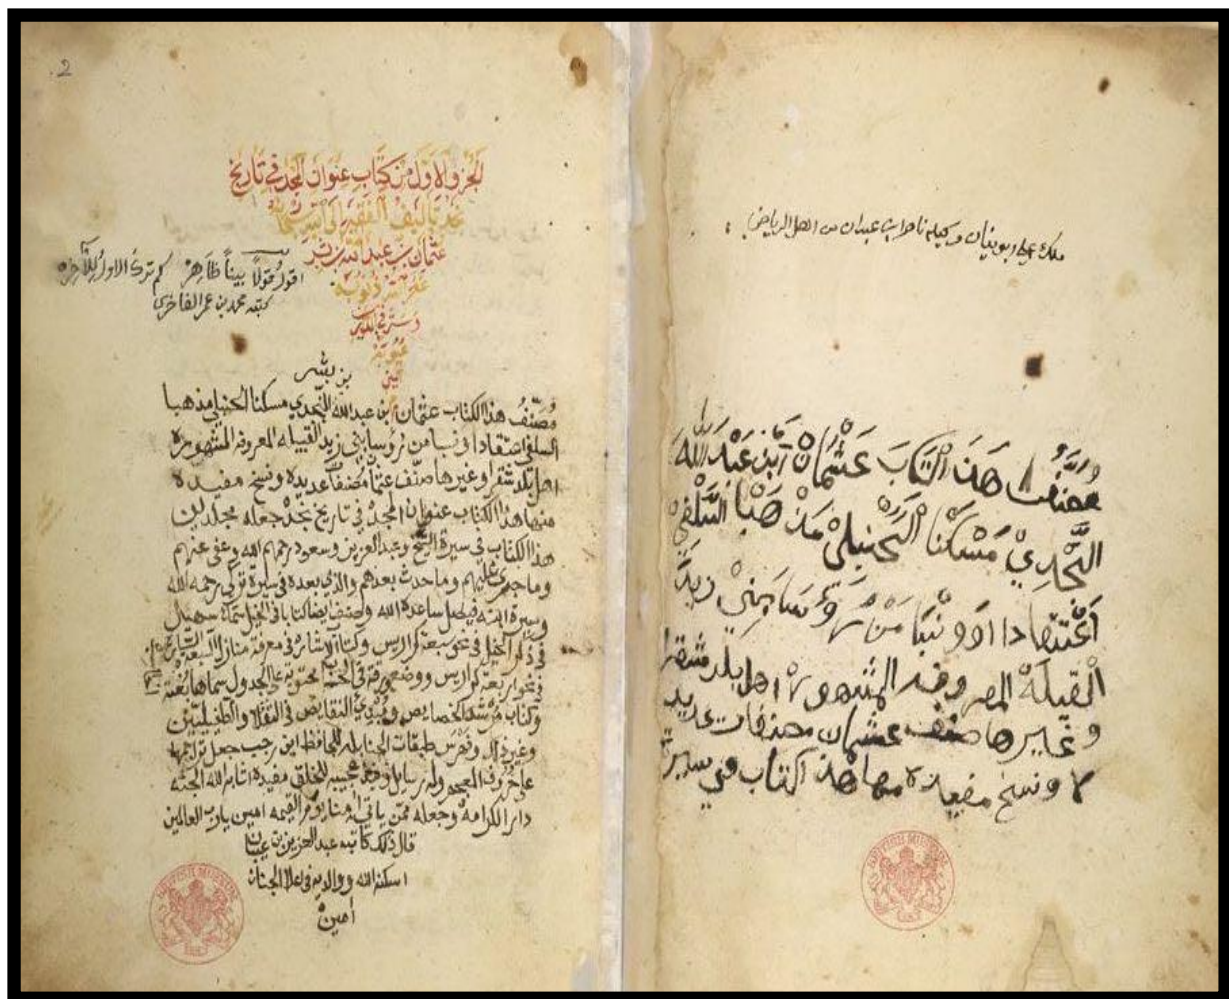 ملك علي ابو بنيان وكيله ناصر ابن عبدان من اهل الرياض
مصنف هذا الكتاب عثمان ابن عبد الله
النجدي مسكنا الحنبلي مذهبا السلفي
اعتقادا ونسبا من رؤسا بني زيد
القبيله المعروفه المشهوره اهل بلد شقرا
وغيرها صنف عثمان مصنفات عديد
ه ونسخ مفيده منها هذا الكتاب في سيرة
2
الجزو الاول من كتاب عنوان المجد في تاريخ
نجد تاليف الفقير الى الله
عثمان بن عبد الله بن بشر
غفر الله ذنوبه
وستر في الدارين
عيوبه
امين
اقول قولا بينا ظاهر كم ترك الاول للآخره
كتبه محمد بن عمر الفاخري
بن بشر
مصنف هذا الكتاب عثمان ابن عبد الله النجدي مسكنا الحنبلي مذهبا
السلفي اعتقادا ونسبا من رؤسا بني زيد القبيله المعروفه المشهوره
اهل بلد شقرا وغيرها صنف عثمان مصنفات عديده ونسخ مفيده
منها هذا الكتاب عنوان المجد في تاريخ نجد جعله مجلدين
هذا الكتاب في سيرة الشيخ وعبد العزيز وسعود رحمهم الله وعفى عنهم
وما جرى عليهم وما حدث بعدهم والذي بعده في سيرة تركي رحمه الله
وسيرة ابنه فيصل ساعده الله وصنف ايضا كتابا في الخيل سماه سهيل
في ذكر الخيل في نحو سبعة كراريس وكتاب الاشاره في معرفة منازل السبعة
في نحو اربعة كراريس ووضع ورقة في الجدول سماها بغية
وكتاب مرشد الخصائص ومبدي النقايص في الثقلا والطفيليين
وغير ذلك وفهرس طبقات الحنابله للحافظ ابن رجب جعل تراجمها
على حروف المعجم وله رسايل عجيبه للخلق مفيدة اثابه الله الجنه
دار الكرامه وجعله ممن ياتي امنا يوم القيمه امين يا رب العالمين
قال ذلك كاتبه عبد العزيز بن
اسكنه الله ووالديه في اعلا الجنان
امين
BRITISH MUSEUM
BRITISH MUSEUM